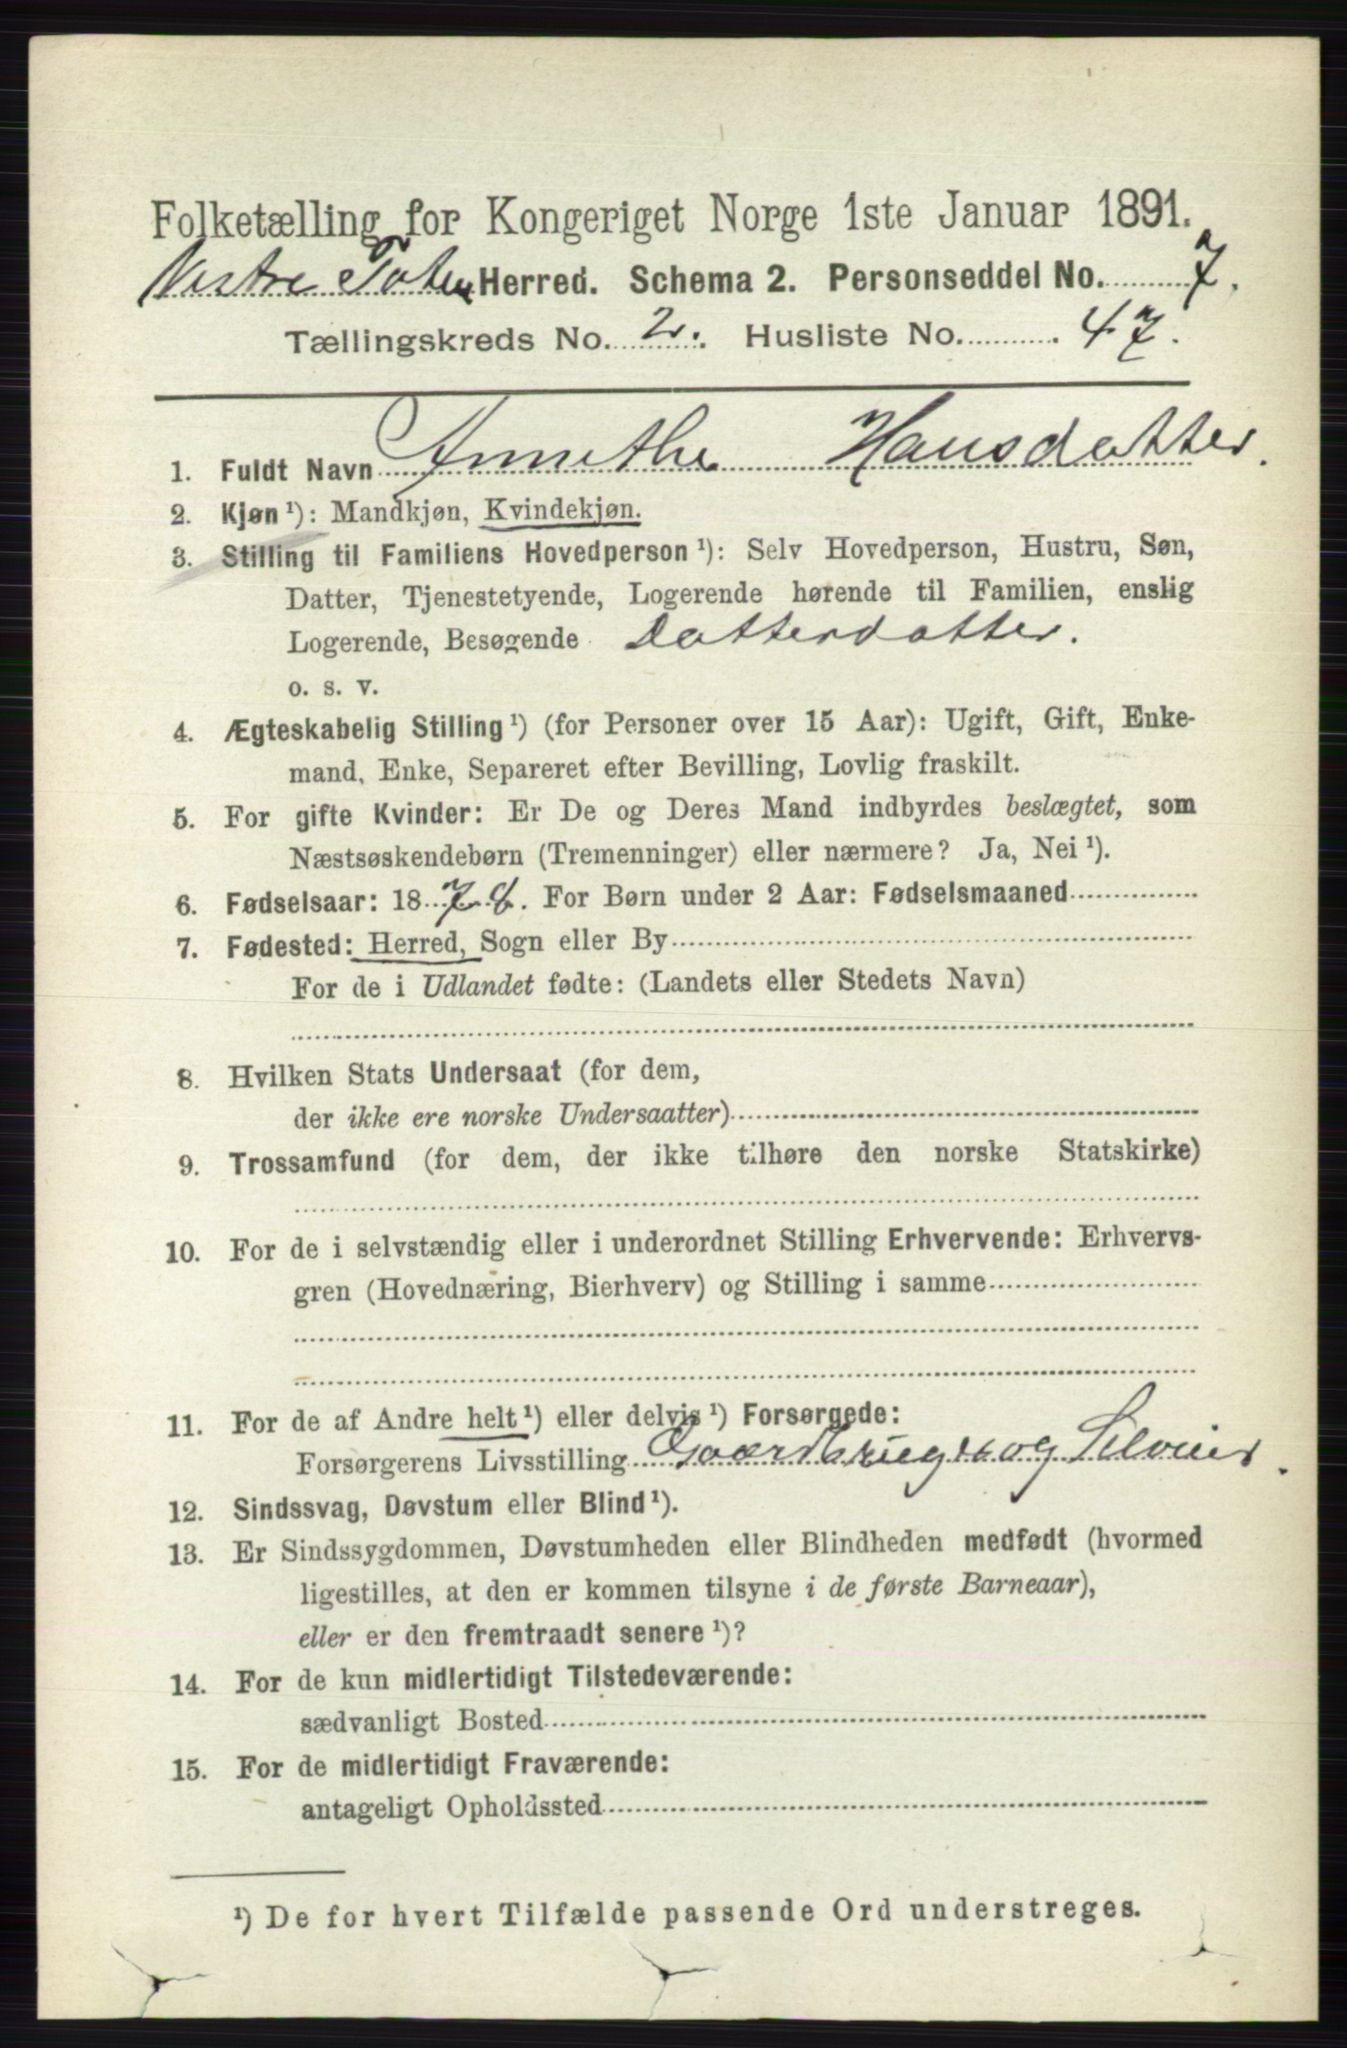 Folketælling for Kongeriget Norge 1ste Januar 1891.
Vestre Toten Herred. Schema 2. Personseddel No. 7.
Tællingskreds No. 2. Husliste No. 47.
1. Fuldt Navn Annethe Hansdatter.
2. Kjøn ¹): Mandkjøn, Kvindekjøn.
3. Stilling til Familiens Hovedperson ¹): Selv Hovedperson, Hustru, Søn,
Datter, Tjenestetyende, Logerende hørende til Familien, enslig
Logerende, Besøgende Datterdatter.
o. s. v.
4. Ægteskabelig Stilling ¹) (for Personer over 15 Aar): Ugift, Gift, Enke-
mand, Enke, Separeret efter Bevilling, Lovlig fraskilt.
5. For gifte Kvinder: Er De og Deres Mand indbyrdes beslægtet, som
Næstsøskendebørn (Tremenninger) eller nærmere? Ja, Nei ¹).
6. Fødselsaar: 1878. For Børn under 2 Aar: Fødselsmaaned
7. Fødested: Herred, Sogn eller By
For de i Udlandet fødte: (Landets eller Stedets Navn)
8. Hvilken Stats Undersaat (for dem,
der ikke ere norske Undersaatter)
9. Trossamfund (for dem, der ikke tilhøre den norske Statskirke)
10. For de i selvstændig eller i underordnet Stilling Erhvervende: Erhvervs-
gren (Hovednæring, Bierhverv) og Stilling i samme
11. For de af Andre helt ¹) eller delvis ¹) Forsørgede:
Forsørgerens Livsstilling Gaardbruger og Selveier.
12. Sindssvag, Døvstum eller Blind ¹).
13. Er Sindssygdommen, Døvstumheden eller Blindheden medfødt (hvormed
ligestilles, at den er kommen tilsyne i de første Barneaar),
eller er den fremtraadt senere ¹)?
14. For de kun midlertidigt Tilstedeværende:
sædvanligt Bosted
15. For de midlertidigt Fraværende:
antageligt Opholdssted
¹) De for hvert Tilfælde passende Ord understreges.